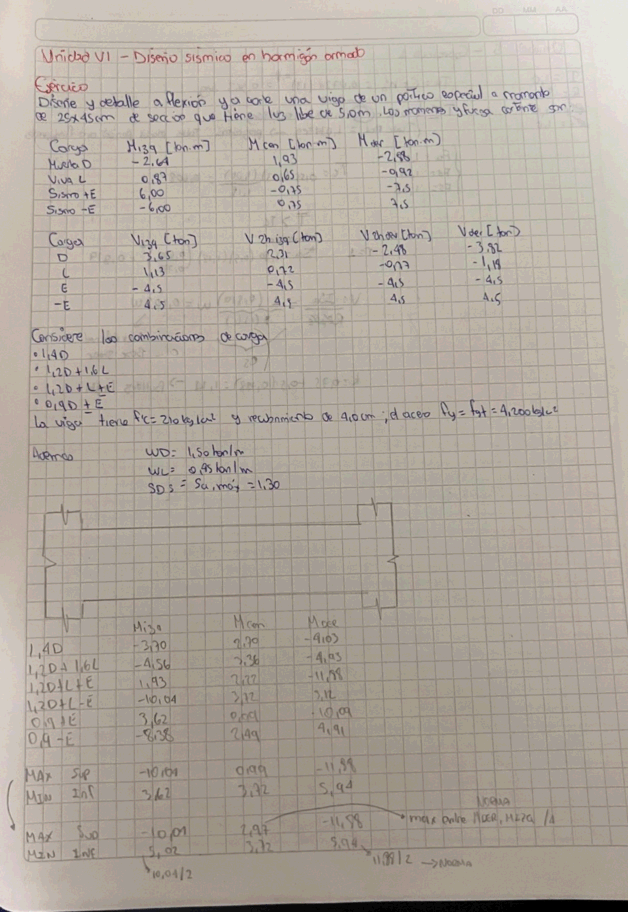 DD MM AA
Unidad VI - Diseño sísmico en hormigón armado
Ejercicio
Diseñe y detalle a flexión y a corte una viga de un pórtico especial a momento
de 25x45cm de sección que tiene luz libre de 5,0m. Los momentos y fuerza cortante son
Carga Mizq [ton.m] Mcen [ton.m] Mder [ton.m]
Muerta D -2,64 1,93 -2,88
Viva L 0,87 0,65 -0,92
Sismo +E 6,00 -0,75 -7,5
Sismo -E -6,00 0,75 7,5
Carga Vizq [ton] V2h izq [ton] V2h der [ton] Vder [ton]
D 3,65 2,31 -2,48 -3,82
L 1,13 0,72 -0,77 -1,18
E -4,5 -4,5 -4,5 -4,5
-E 4,5 4,5 4,5 4,5
Considere las combinaciones de carga
• 1,4D
• 1,2D+1,6L
• 1,2D+L+E
• 0,9D±E
La viga tiene f'c=210kg/cm² y recubrimiento de 4,0cm; el acero fy=fyt=4,200kg/cm²
Además WD= 1,50ton/m
WL= 0,45ton/m
SDS = Sa,máx =1,30
Mizq Mcen Mder
1,4D -3,70 2,70 -4,03
1,2D+1,6L -4,56 3,36 -4,93
1,2D+L+E 1,93 2,22 -11,88
1,2D+L-E -10,04 3,72 3,12
0,9+E 3,62 0,99 -10,09
0,9-E -8,38 2,49 4,91
MAX Sup -10,04 0,99 -11,88
MIN Inf 3,62 3,72 5,94
Norma
MAX Sup -10,04 2,97 -11,88 • max entre Mder, Mizq /4
MIN Inf 5,02 3,72 5,94
10,04/2 11,88/2 → Norma